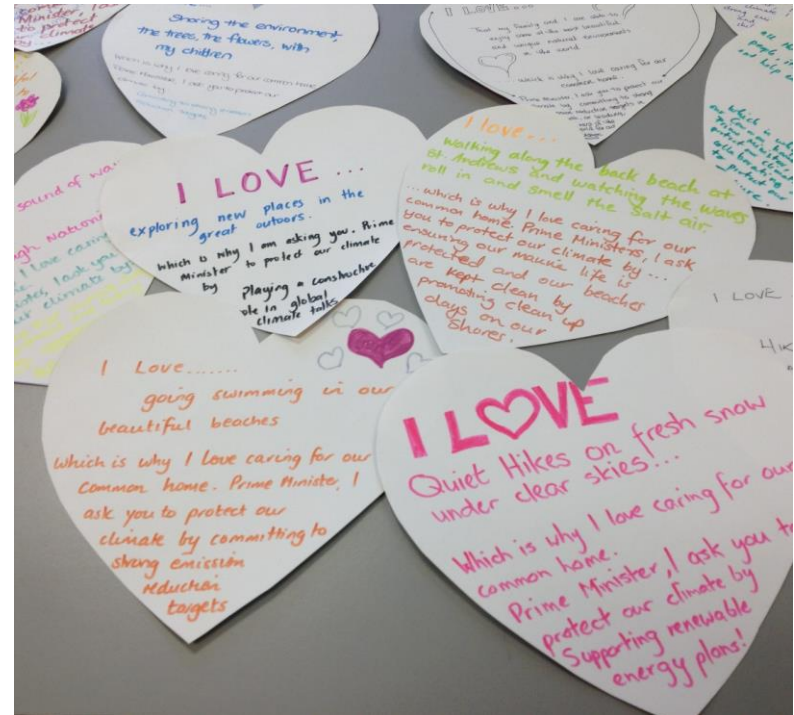 Minister, I
to protect
climate
Sharing the environment,
the trees, the flowers, with
my children
which is why I love caring for our common home
Prime Minister, I ask you to protect our
climate by
That my family and I are able to
enjoy some of the most beautiful
and unique natural environments
in the world
which is why I love caring for our
common home.
Prime Minister, I ask you to protect our
climate by committing to strong
sound of
I love caring
I ask you
our climate by
I LOVE ...
exploring new places in the
great outoors.
which is why I am asking you. Prime
Minister to protect our climate
by
Playing a constructive
role in global
climate talks
I love...
Walking along the back beach at
St. Andrews and watching the waves
roll in and smell the salt air.
... which is why I love caring for our
common home. Prime Ministers, I ask
you to protect our climate by ...
ensuring our marine life is
protected and our beaches
are kept clean by
promoting clean up
days on our
shores.
I LOVE
I Love.......
going swimming in our
beautiful beaches
which is why I love caring for our
common home. Prime Minister, I
ask you to protect our
climate by committing to
strong emission
reduction
targets
I LOVE
Quiet Hikes on fresh snow
under clear skies...
Which is why I love caring for our
common home.
Prime Minister, I ask you to
protect our climate by
Supporting renewable
energy plans!